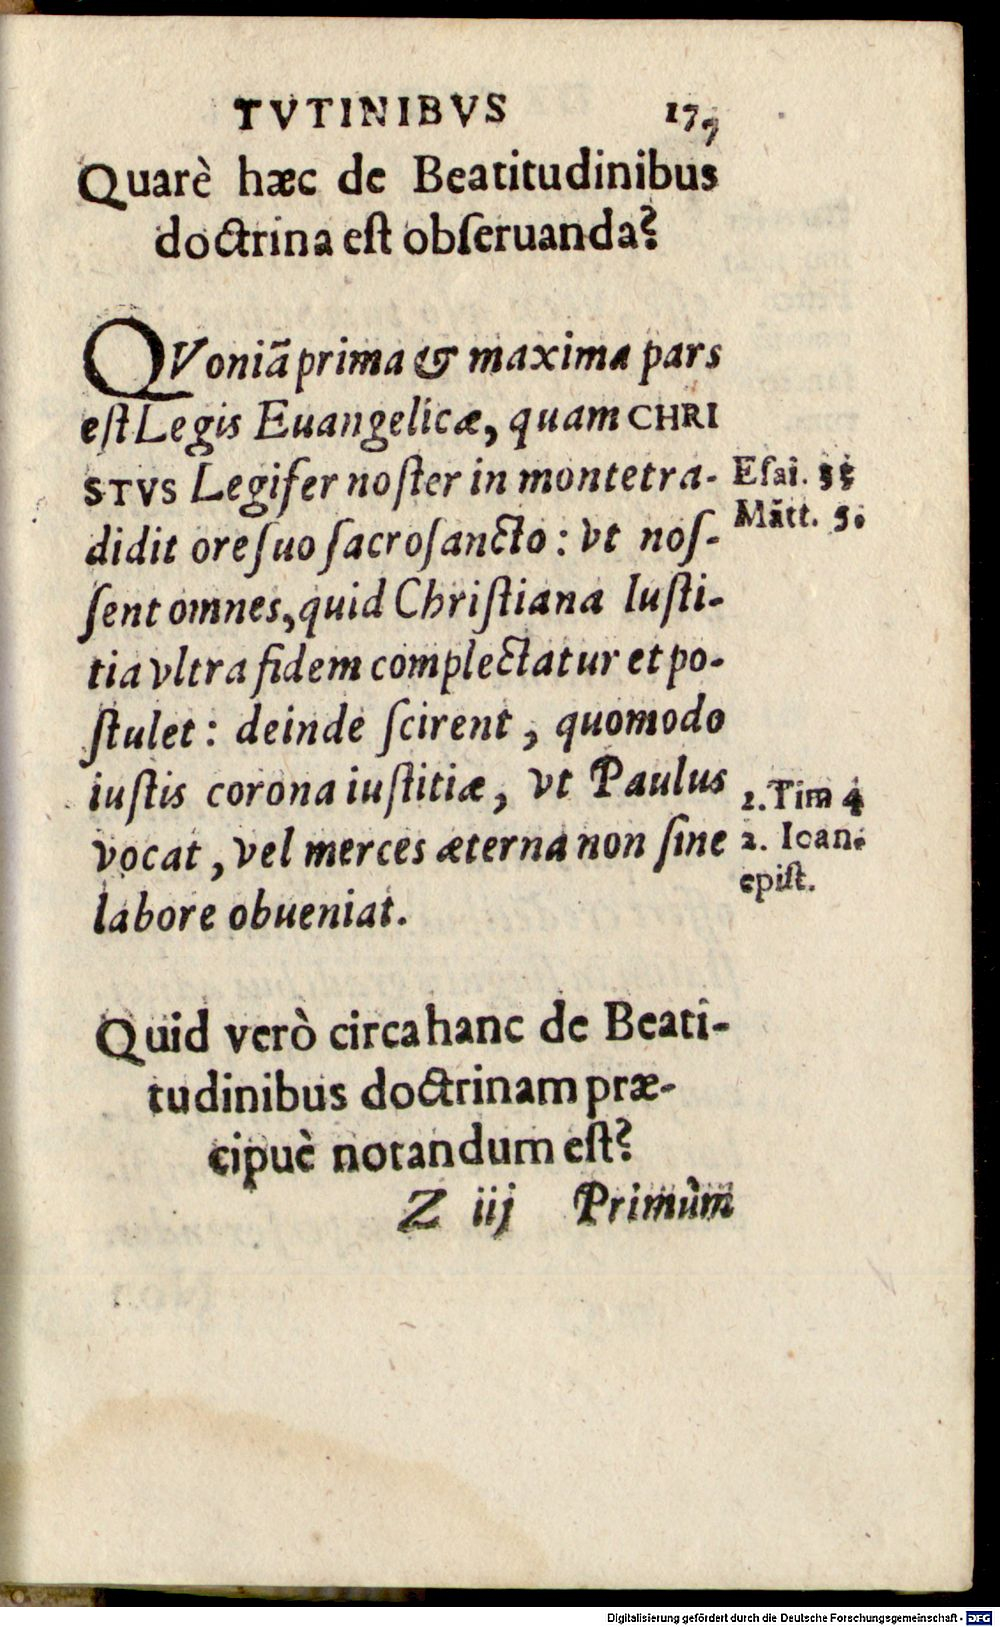 TVTINIBVS 177
Quarè hæc de Beatitudinibus
doctrina est obſeruanda?
QVoniā prima & maxima pars
eſt Legis Euangelicæ, quam CHRI
STVS Legifer noſter in monte tra-
didit ore ſuo ſacroſancto: vt noſ-
ſent omnes, quid Chriſtiana Iuſti-
tia vltra fidem complectatur et po-
ſtulet: deinde ſcirent, quomodo
iuſtis corona iuſtitiæ, vt Paulus
vocat, vel merces æterna non ſine
labore obueniat.
Eſai. 33
Matt. 5.
2. Tim 4
2. Ioan.
epiſt.
Quid verò circa hanc de Beati-
tudinibus doctrinam præ-
cipuè notandum eſt?
Z iij Primùm
Digitalisierung gefördert durch die Deutsche Forschungsgemeinschaft - DFG